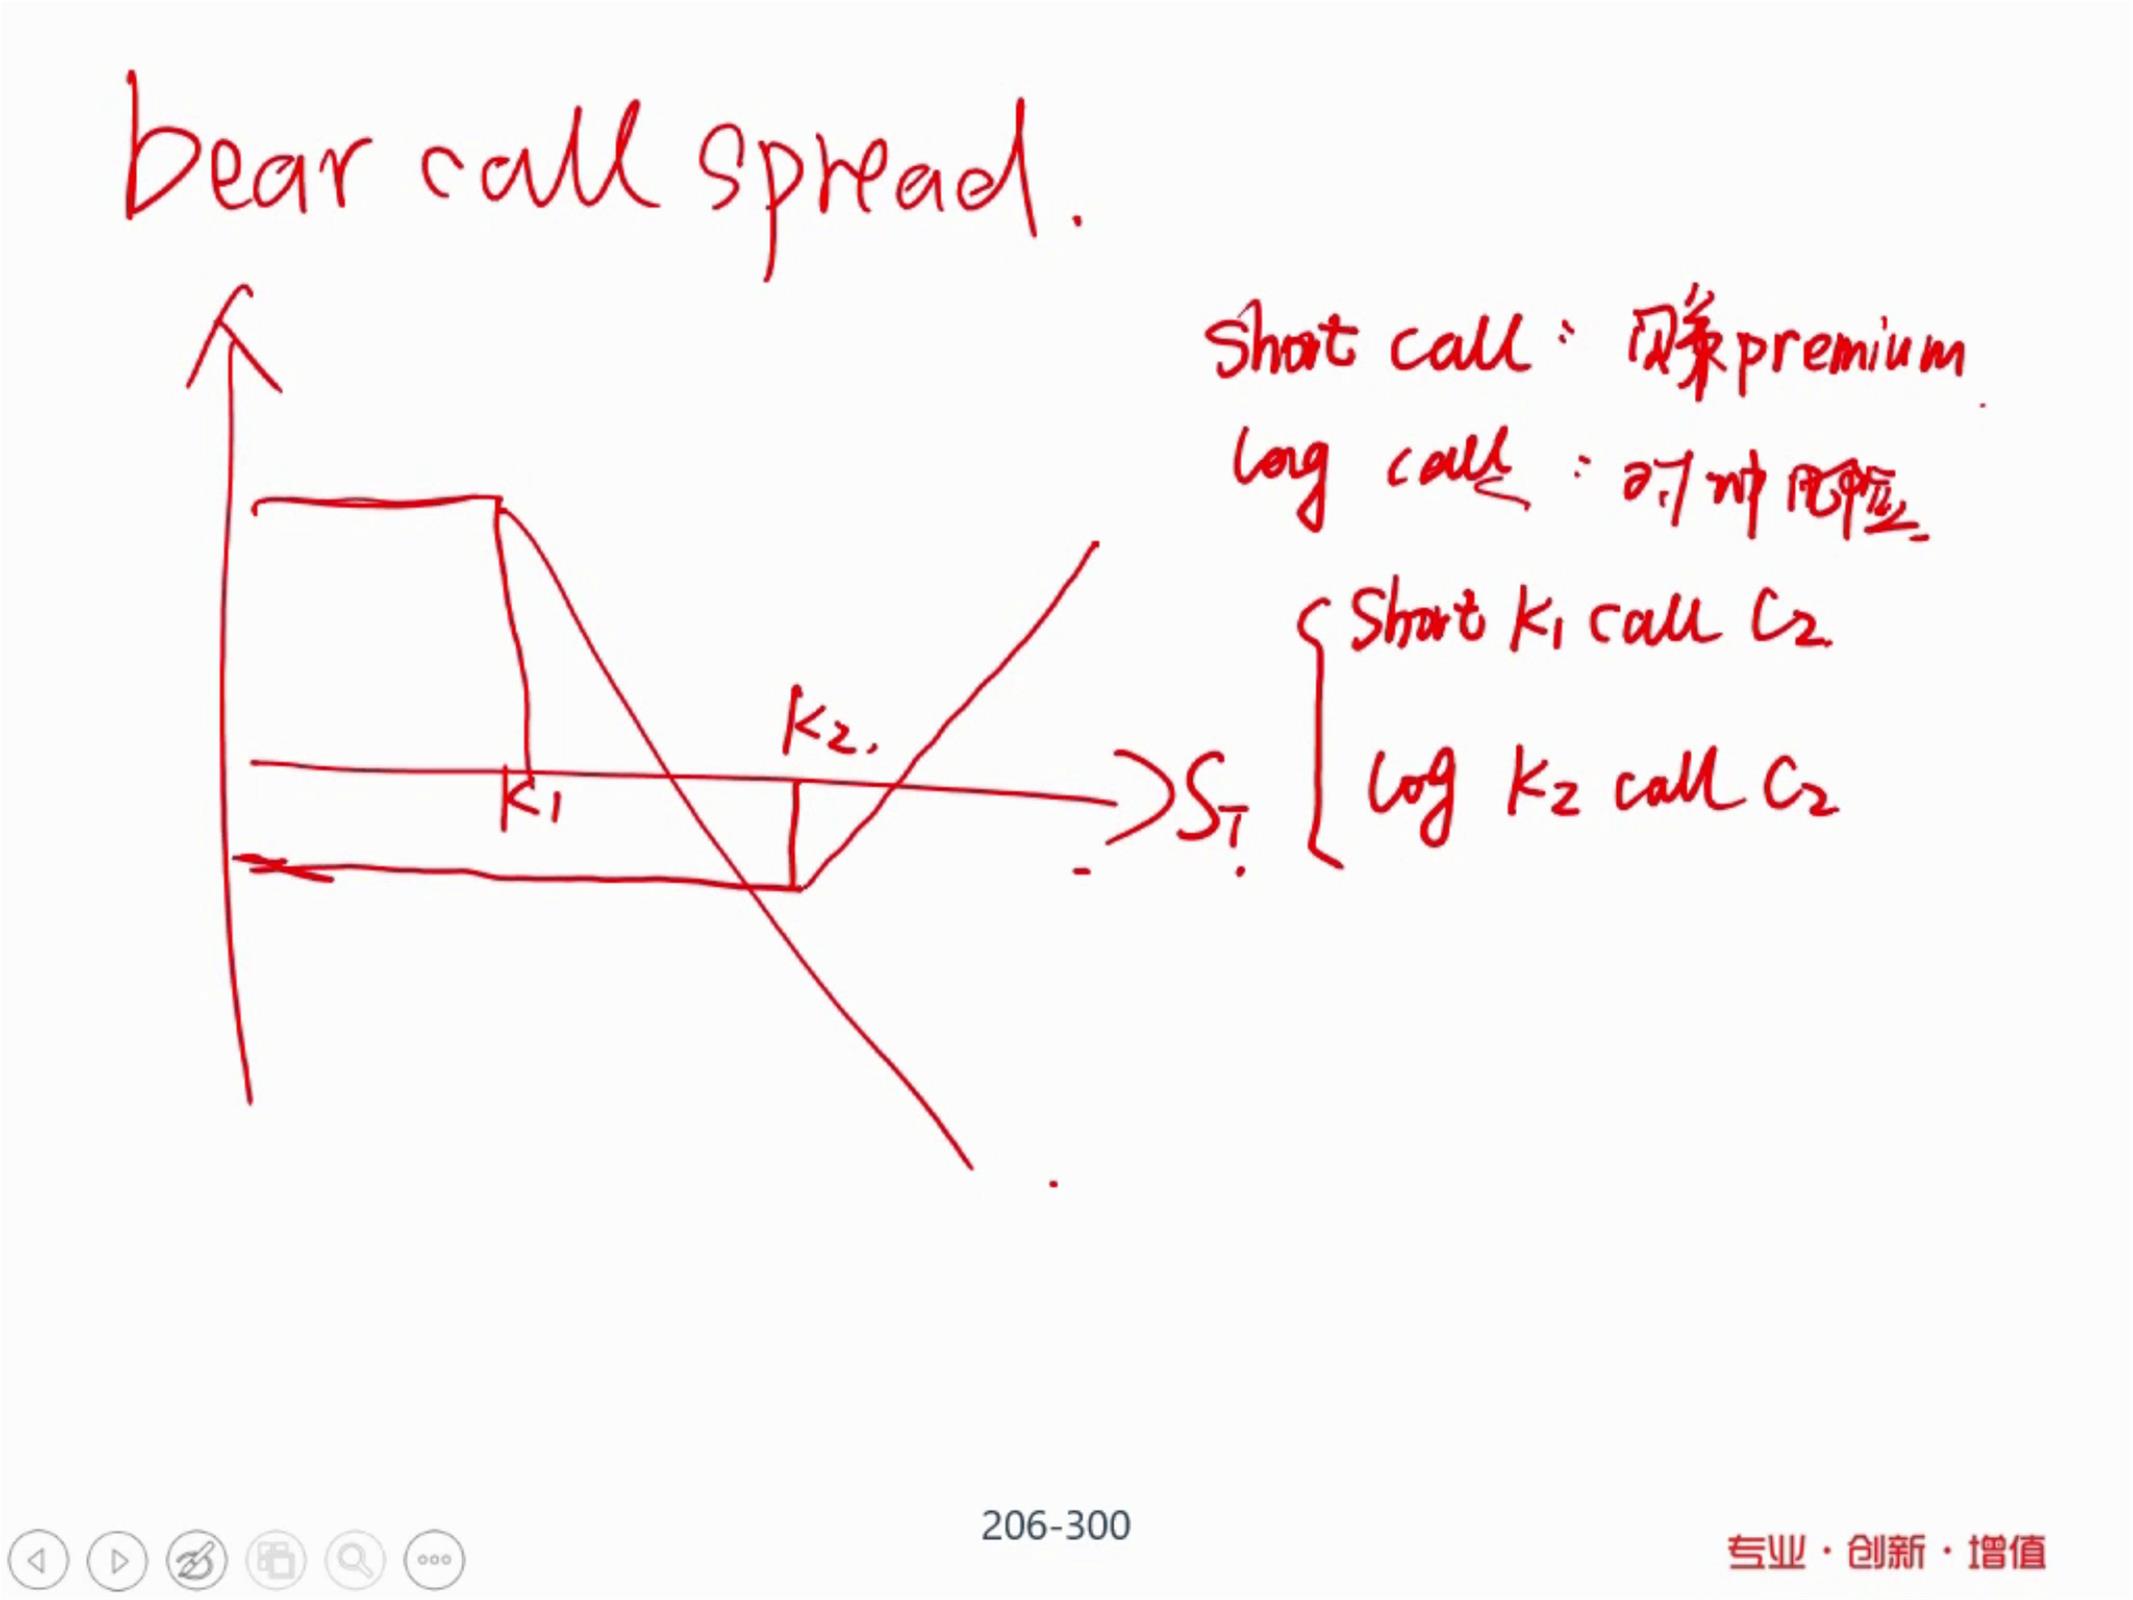 bear call spread.
short call : 赚premium
long call : 对冲风险
short K1 call C2
long K2 call C2
K2.
K1
ST
206-300
专业·创新·增值